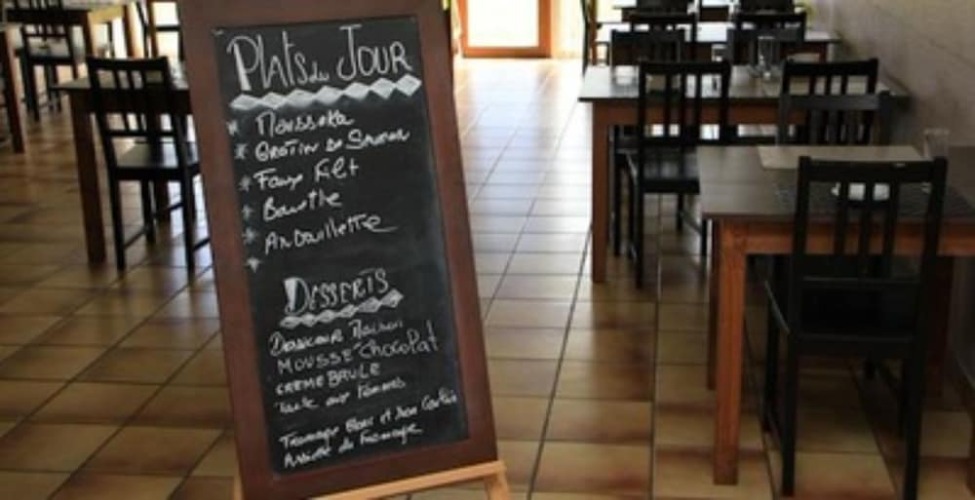 Plats du JOUR
Moussaka
Gratin de
Faux Filet
Bavette
Andouillette
DESSERTS
Maison
MOUSSE Chocolat
CREME BRULE
aux Pommes
Fromage Blanc et son
Assiette de Fromage